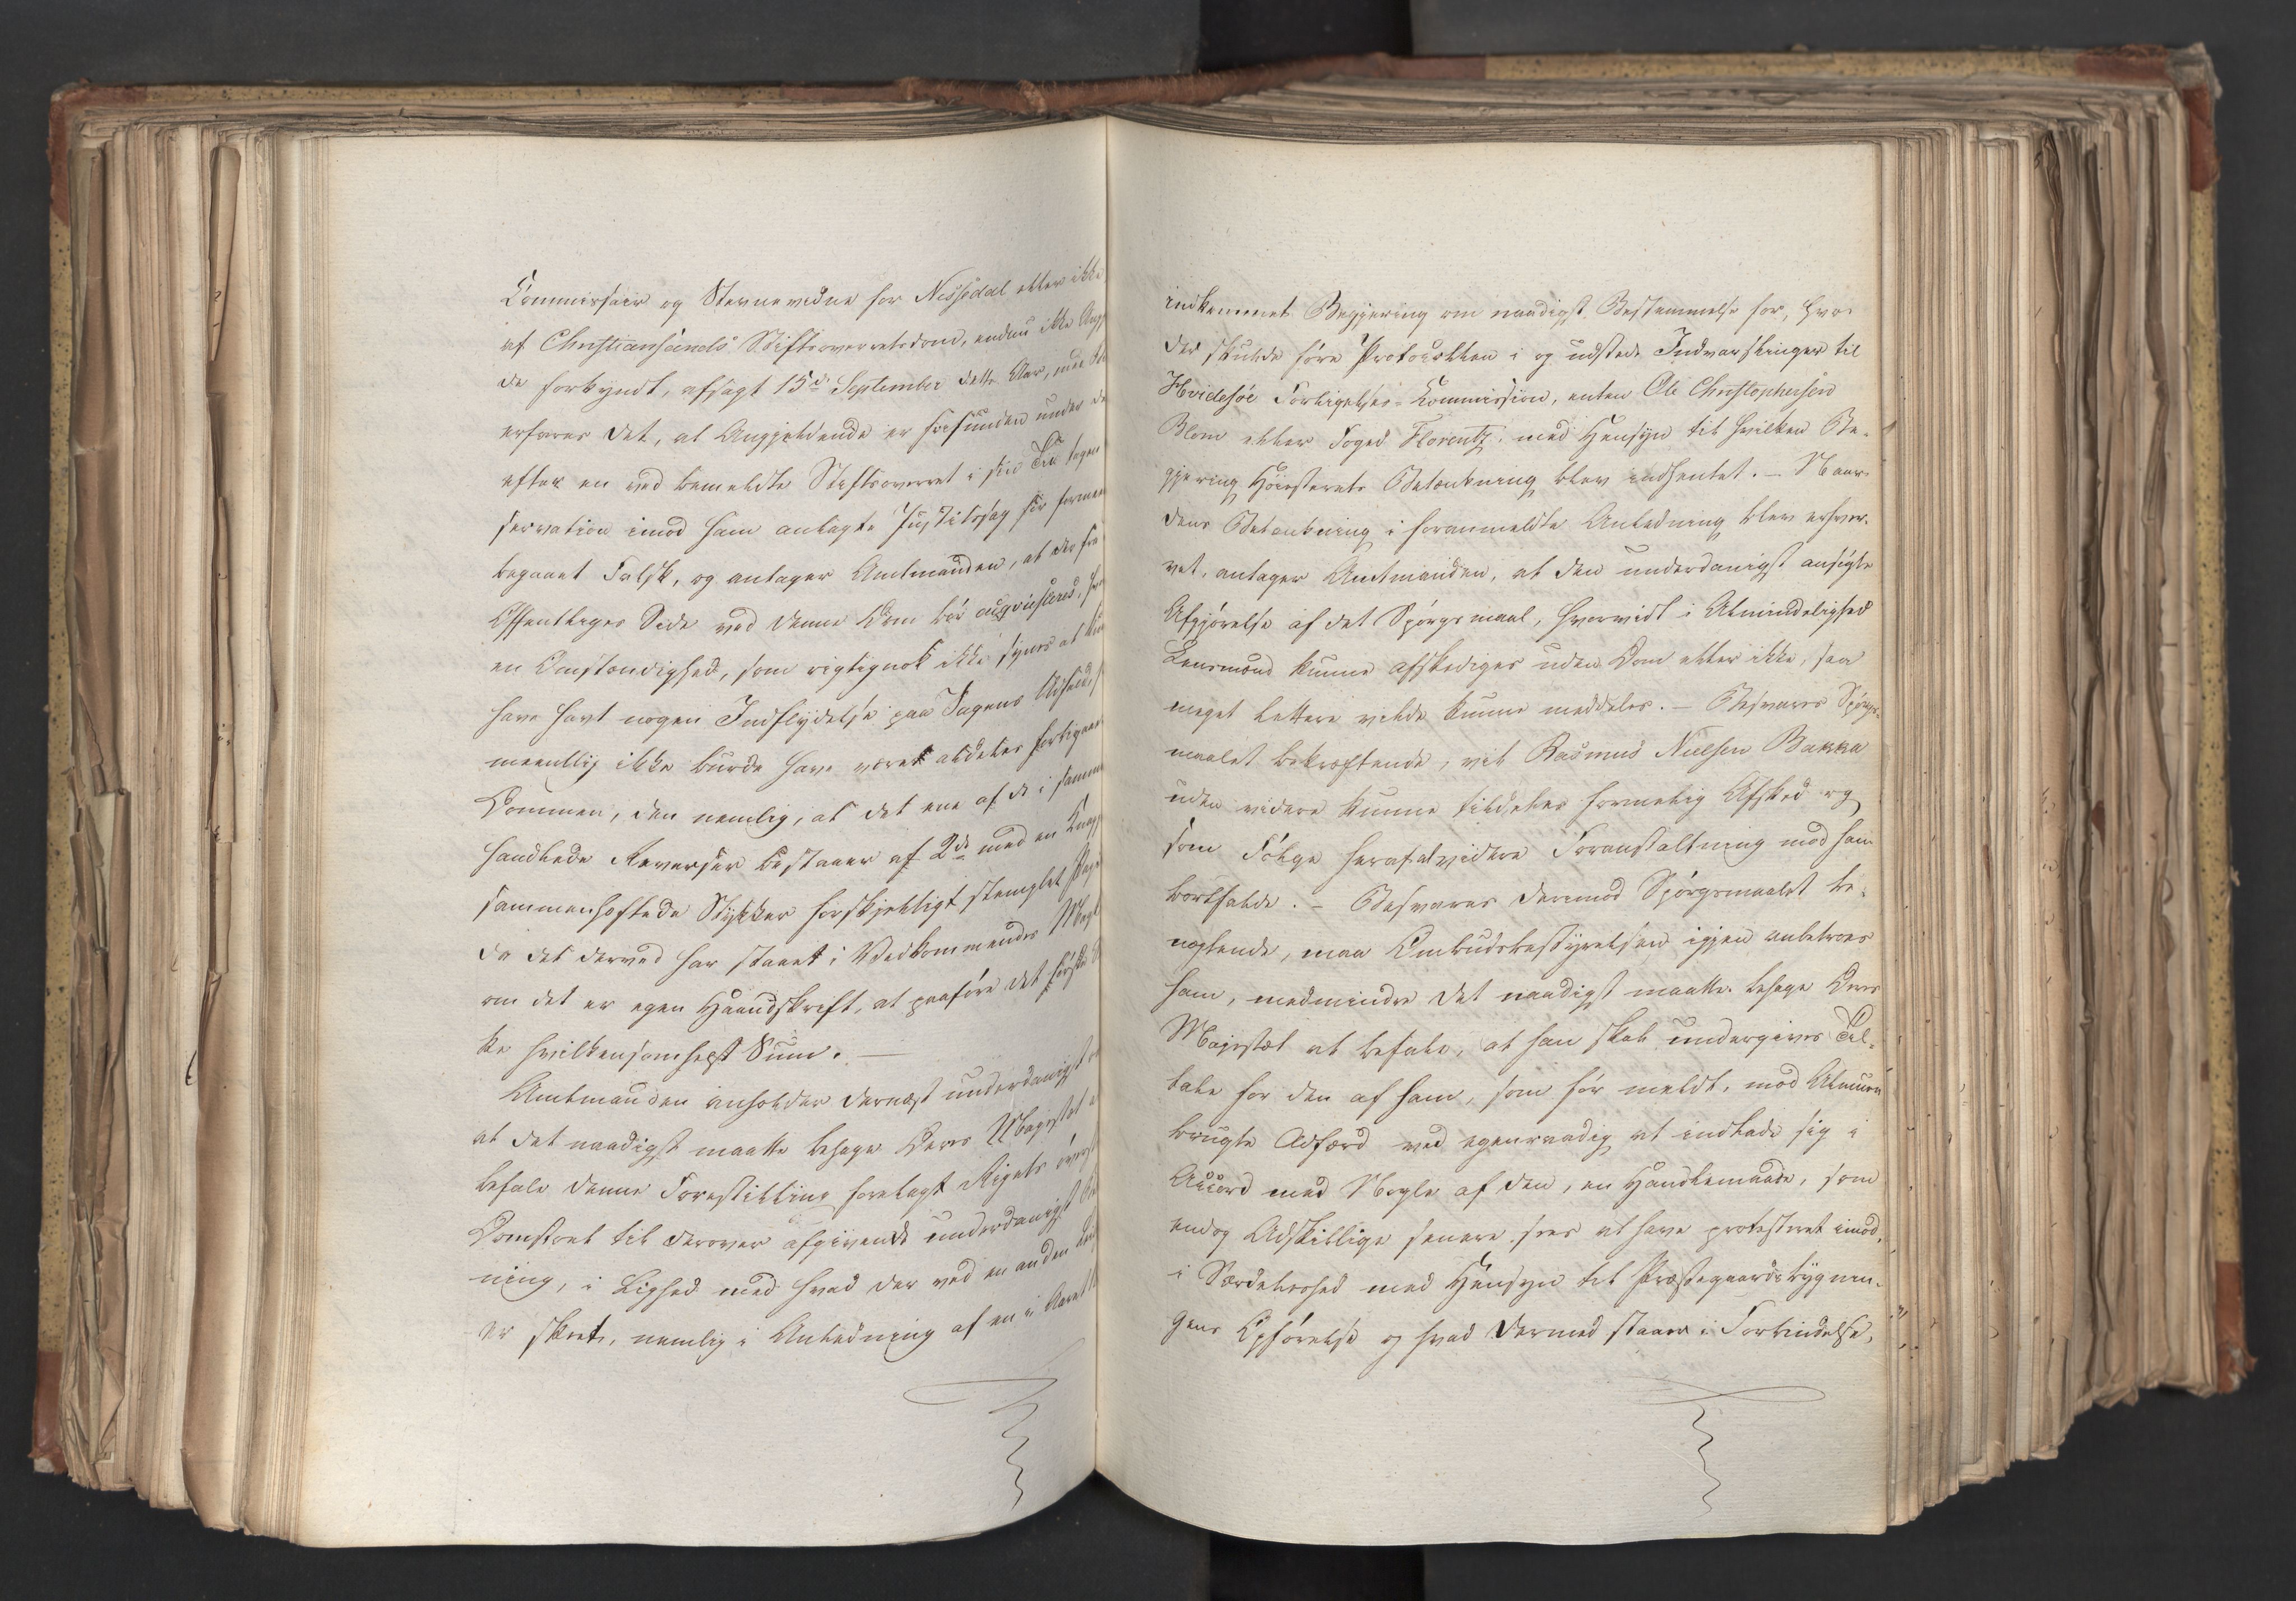 Commissair og Stevnevidne for Nissedal eller ikke
af Christiansands Stiftsoverretsdom, endnu ikke
de forkyndt, afsagt 15de September dette Aar,
erfares det, at Angjeldende er frifunden under
efter en ved bemeldte Stiftsoverret i sin Tid tagen
servation imod ham anlagte Justitssag for formeen
begaaet Falsk, og antager Amtmanden, at der fra
Offentliges Side ved denne Dom bør acqviesceres,
en Omstændighed, som rigtignok ikke synes at
have havt nogen Indflydelse paa Sagens Udfald,
meentlig ikke burde have været aldeles fortigaaet
Dommen, den nemlig, at det ene af de i samme
handlede Reverser bestaaer af 2de med en Knap
sammenhæftede Stykker forskjelligt stemplet Papir
da det derved har staaet i Vedkommendes Magt
om det er egen Haandskrift, at paaføre det første
ke hvilkensomhelst Sum. —
Amtmanden anholder dernæst underdanigst
at det naadigst maatte behage Deres Majestæt
befale denne Forestilling forelagt Rigets øverste
Domstoel til derover afgivende underdanigst
ning, i Lighed med hvad der ved en anden
er skeet, nemlig i Anledning af en i Aaret
indkommet Begjering om naadigst Bestemmelse for, hvo
der skulde føre Protocollen i og udstede Indvarslinger til
Hvidesøe Forligelses-Commission, enten Ole Christophersen
Blom eller Foged Florentz, med Hensyn til hvilken Be-
gjering Høiesterets Betænkning blev indhentet. – Naar
dens Betænkning i foranmeldte Anledning blev erhver-
vet, antager Amtmanden, at den underdanigst ansøgte
Afgjørelse af det Spørgsmaal, hvorvidt i Almindelighed
Lensmænd kunne afskediges uden Dom eller ikke, saa
meget lettere vilde kunne meddeles. – Besvares Spørgs-
maalet bekræftende, vil Rasmus Nielsen Bakka
uden videre kunne tildeles formelig Afsked og
som Følge heraf al videre Foranstaltning mod ham
bortfalde. – Besvares derimod Spørgsmaalet be-
nægtende, maa Ombudsbestyrelsen igjen anbetroes
ham, medmindre det naadigst maatte behage Deres
Majestæt at befale, at han skal undergives Til-
tale for den af ham, som før meldt, mod Almuen
brugte Adfærd ved egenraadig at indlade sig i
Accord med Nogle af den, en Handlemaade, som
endog Adskillige senere sees at have protesteret imod,
i Særdeleshed med Hensyn til Præstegaardsbygnin-
gens Opførelse og hvad dermed staaer i Forbindelse,